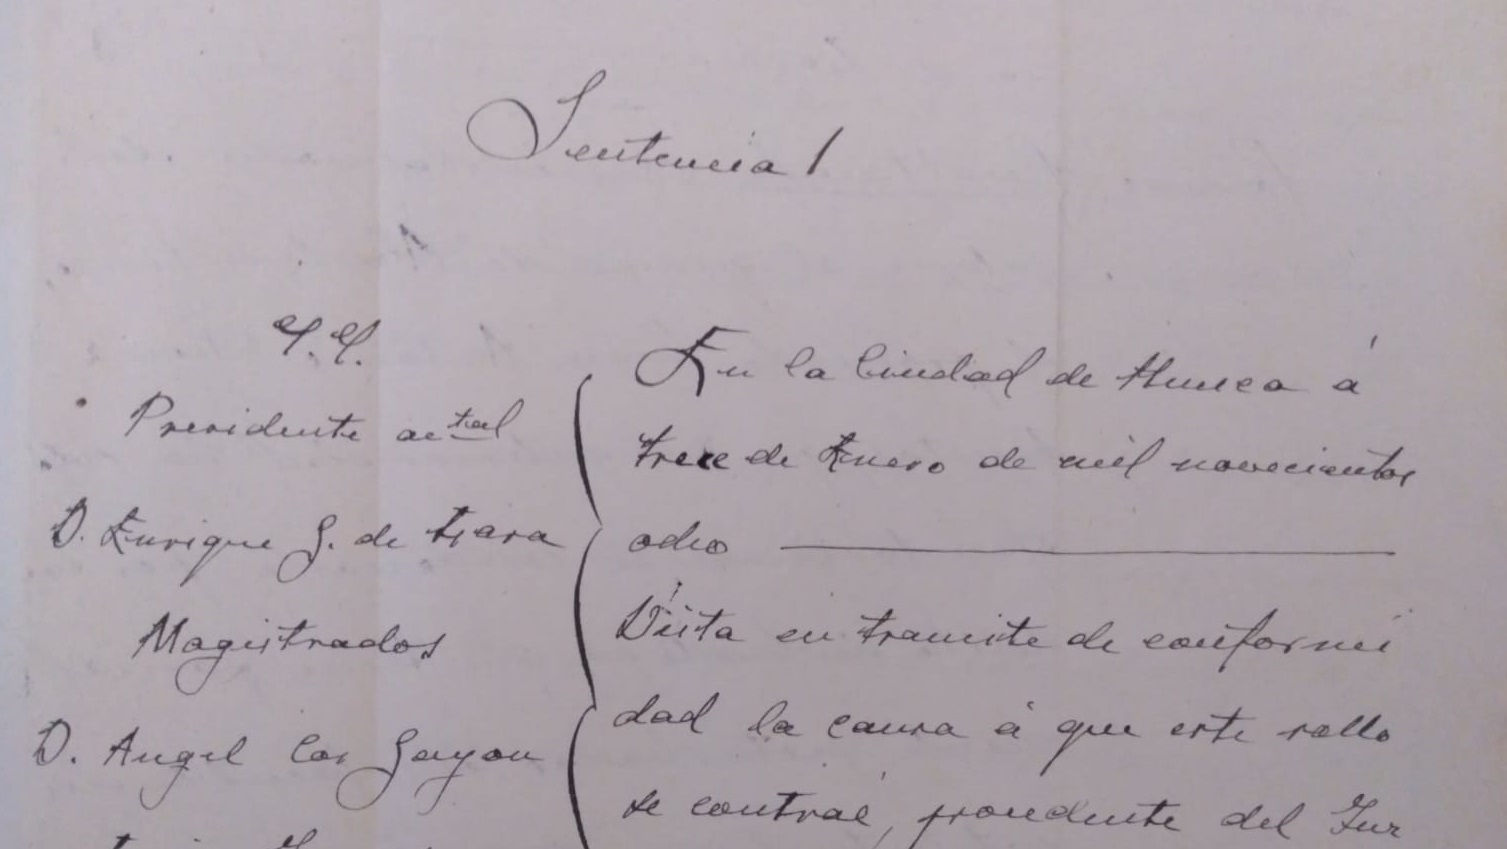 Sentencia /
S.S.
Presidente actal
D. Enrique G. de
Magistrados
D. Angel Cos Gayon
En la Ciudad de Huesca á
trece de Enero de mil novecientos
ocho
Vista en tramite de conformi
dad la causa á que este rollo
se contraé, procedente del Juz